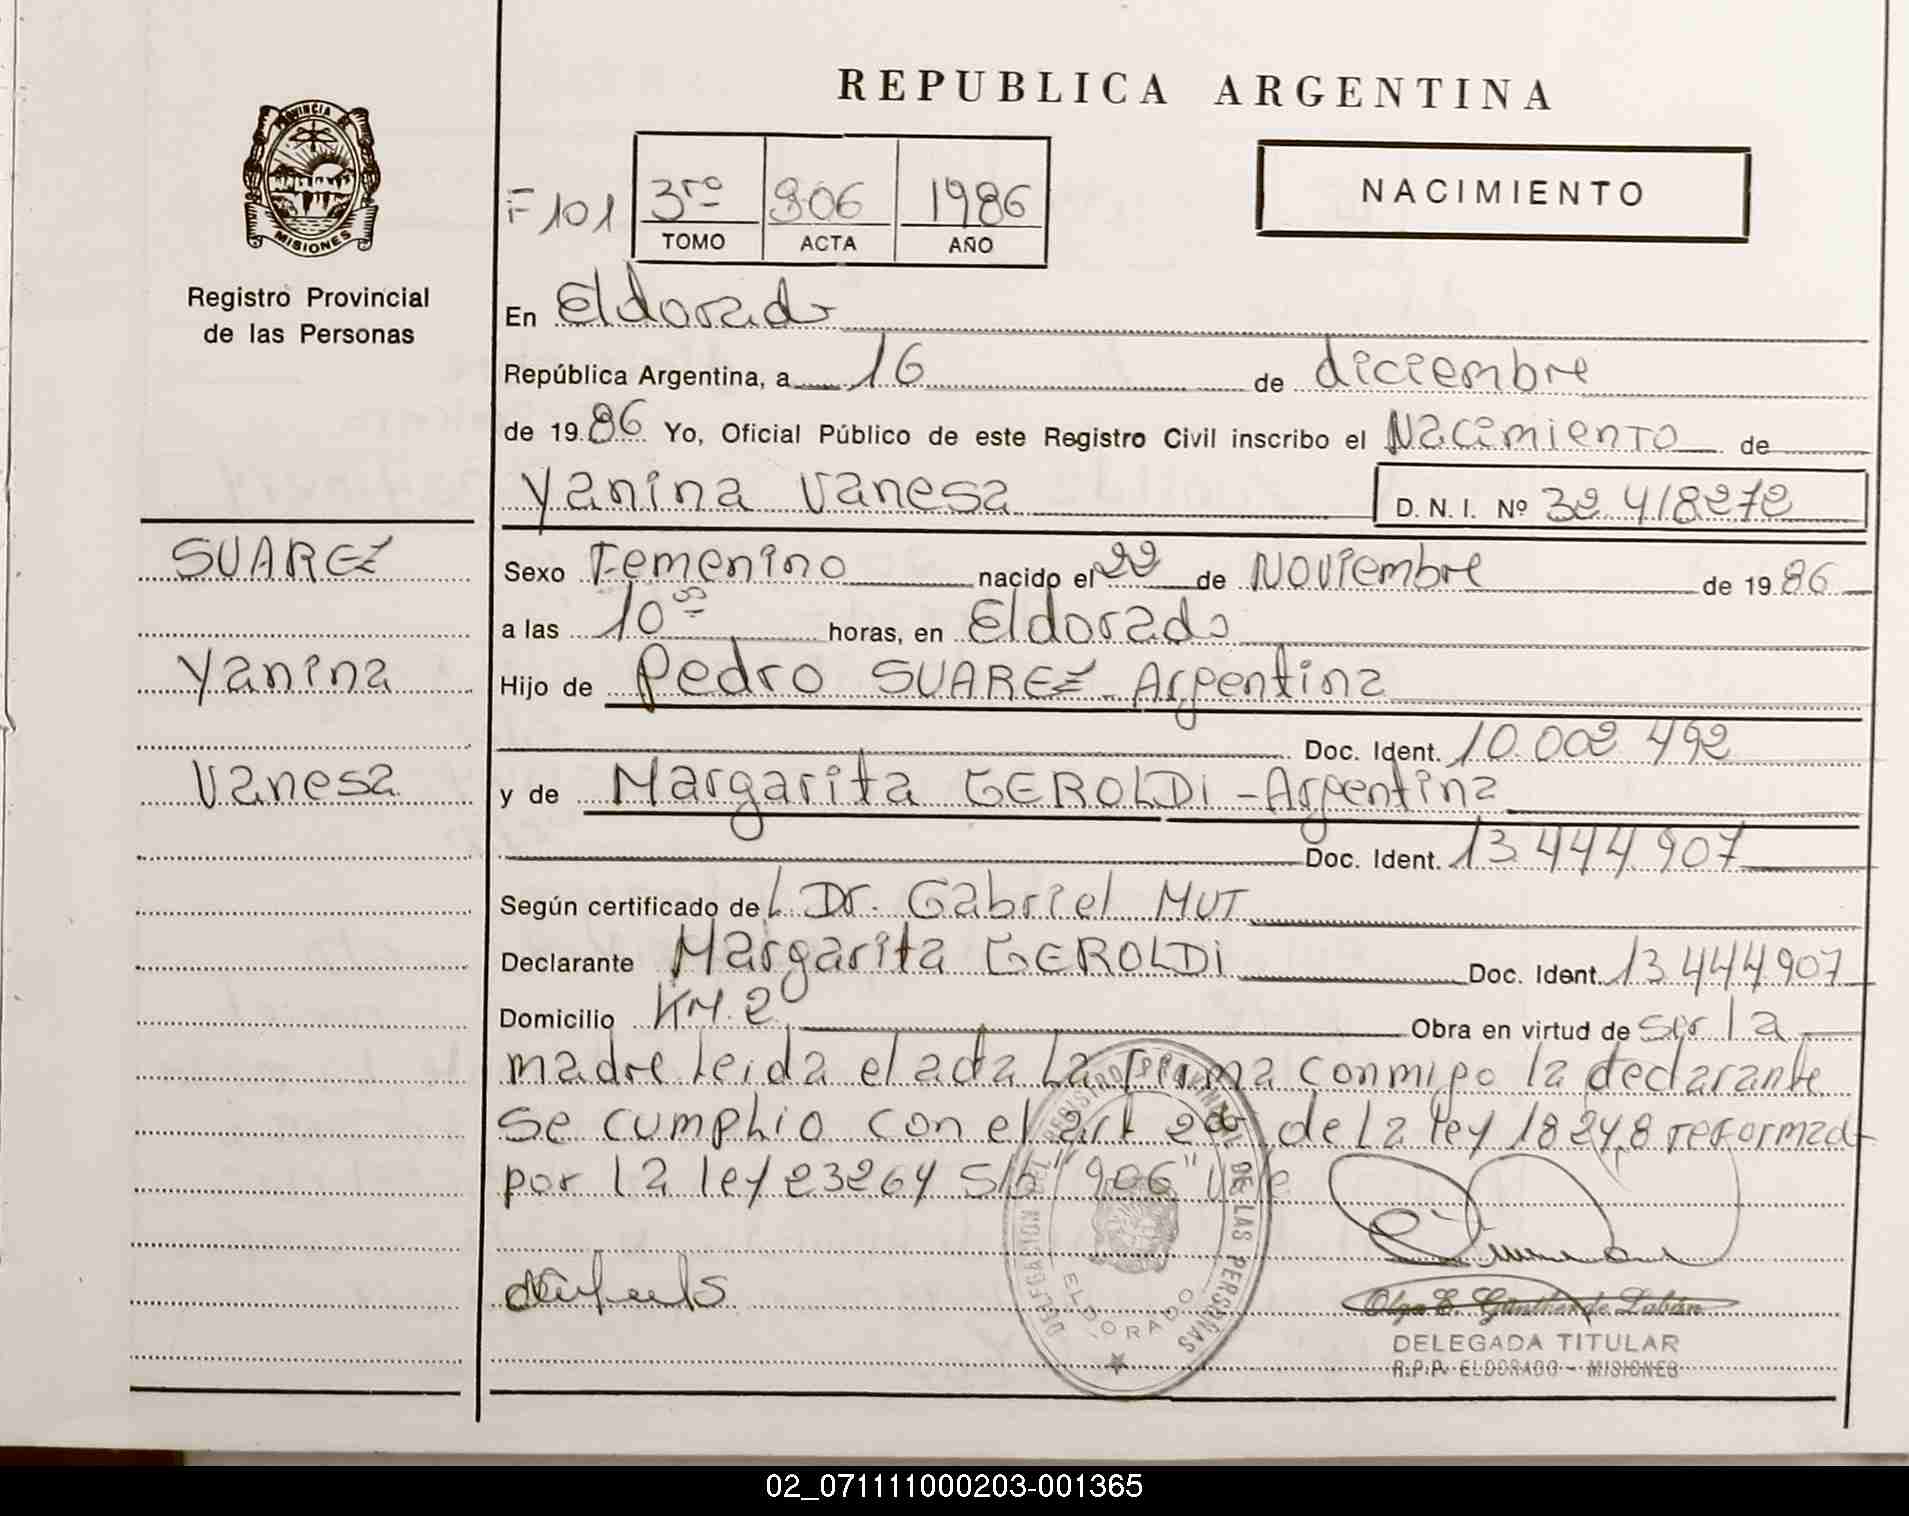 REPUBLICA ARGENTINA
PROVINCIA DE
MISIONES
Registro Provincial
de las Personas
NACIMIENTO
F 101
3ro 906 1986
TOMO ACTA AÑO
En Eldorado
República Argentina, a 16 de diciembre
de 1986 Yo, Oficial Público de este Registro Civil inscribo el Nacimiento de
Yanina Vanesa
D. N. I. Nº 32 418272
SUAREZ
Yanina
Vanesa
Sexo Femenino nacido el 22 de Noviembre de 1986
a las 10 horas, en Eldorado
Hijo de Pedro SUAREZ - Argentina
Doc. Ident. 10.002 492
y de Margarita GEROLDI - Argentina
Doc. Ident. 13.444.907
Según certificado del Dr. Gabriel MUT
Declarante Margarita GEROLDI Doc. Ident. 13.444.907
Domicilio KM. 2 Obra en virtud de ser la
madre leida el acta La firma conmigo la declarante
se cumplio con el art 2do de la ley 18248 reformada
por la ley 23264 S/b "906" Vale
DELEGACION DEL REGISTRO PROVINCIAL DE LAS PERSONAS
ELDORADO
Olga E. Günther de Labán
DELEGADA TITULAR
R.P.P. ELDORADO - MISIONES
02_071111000203-001365